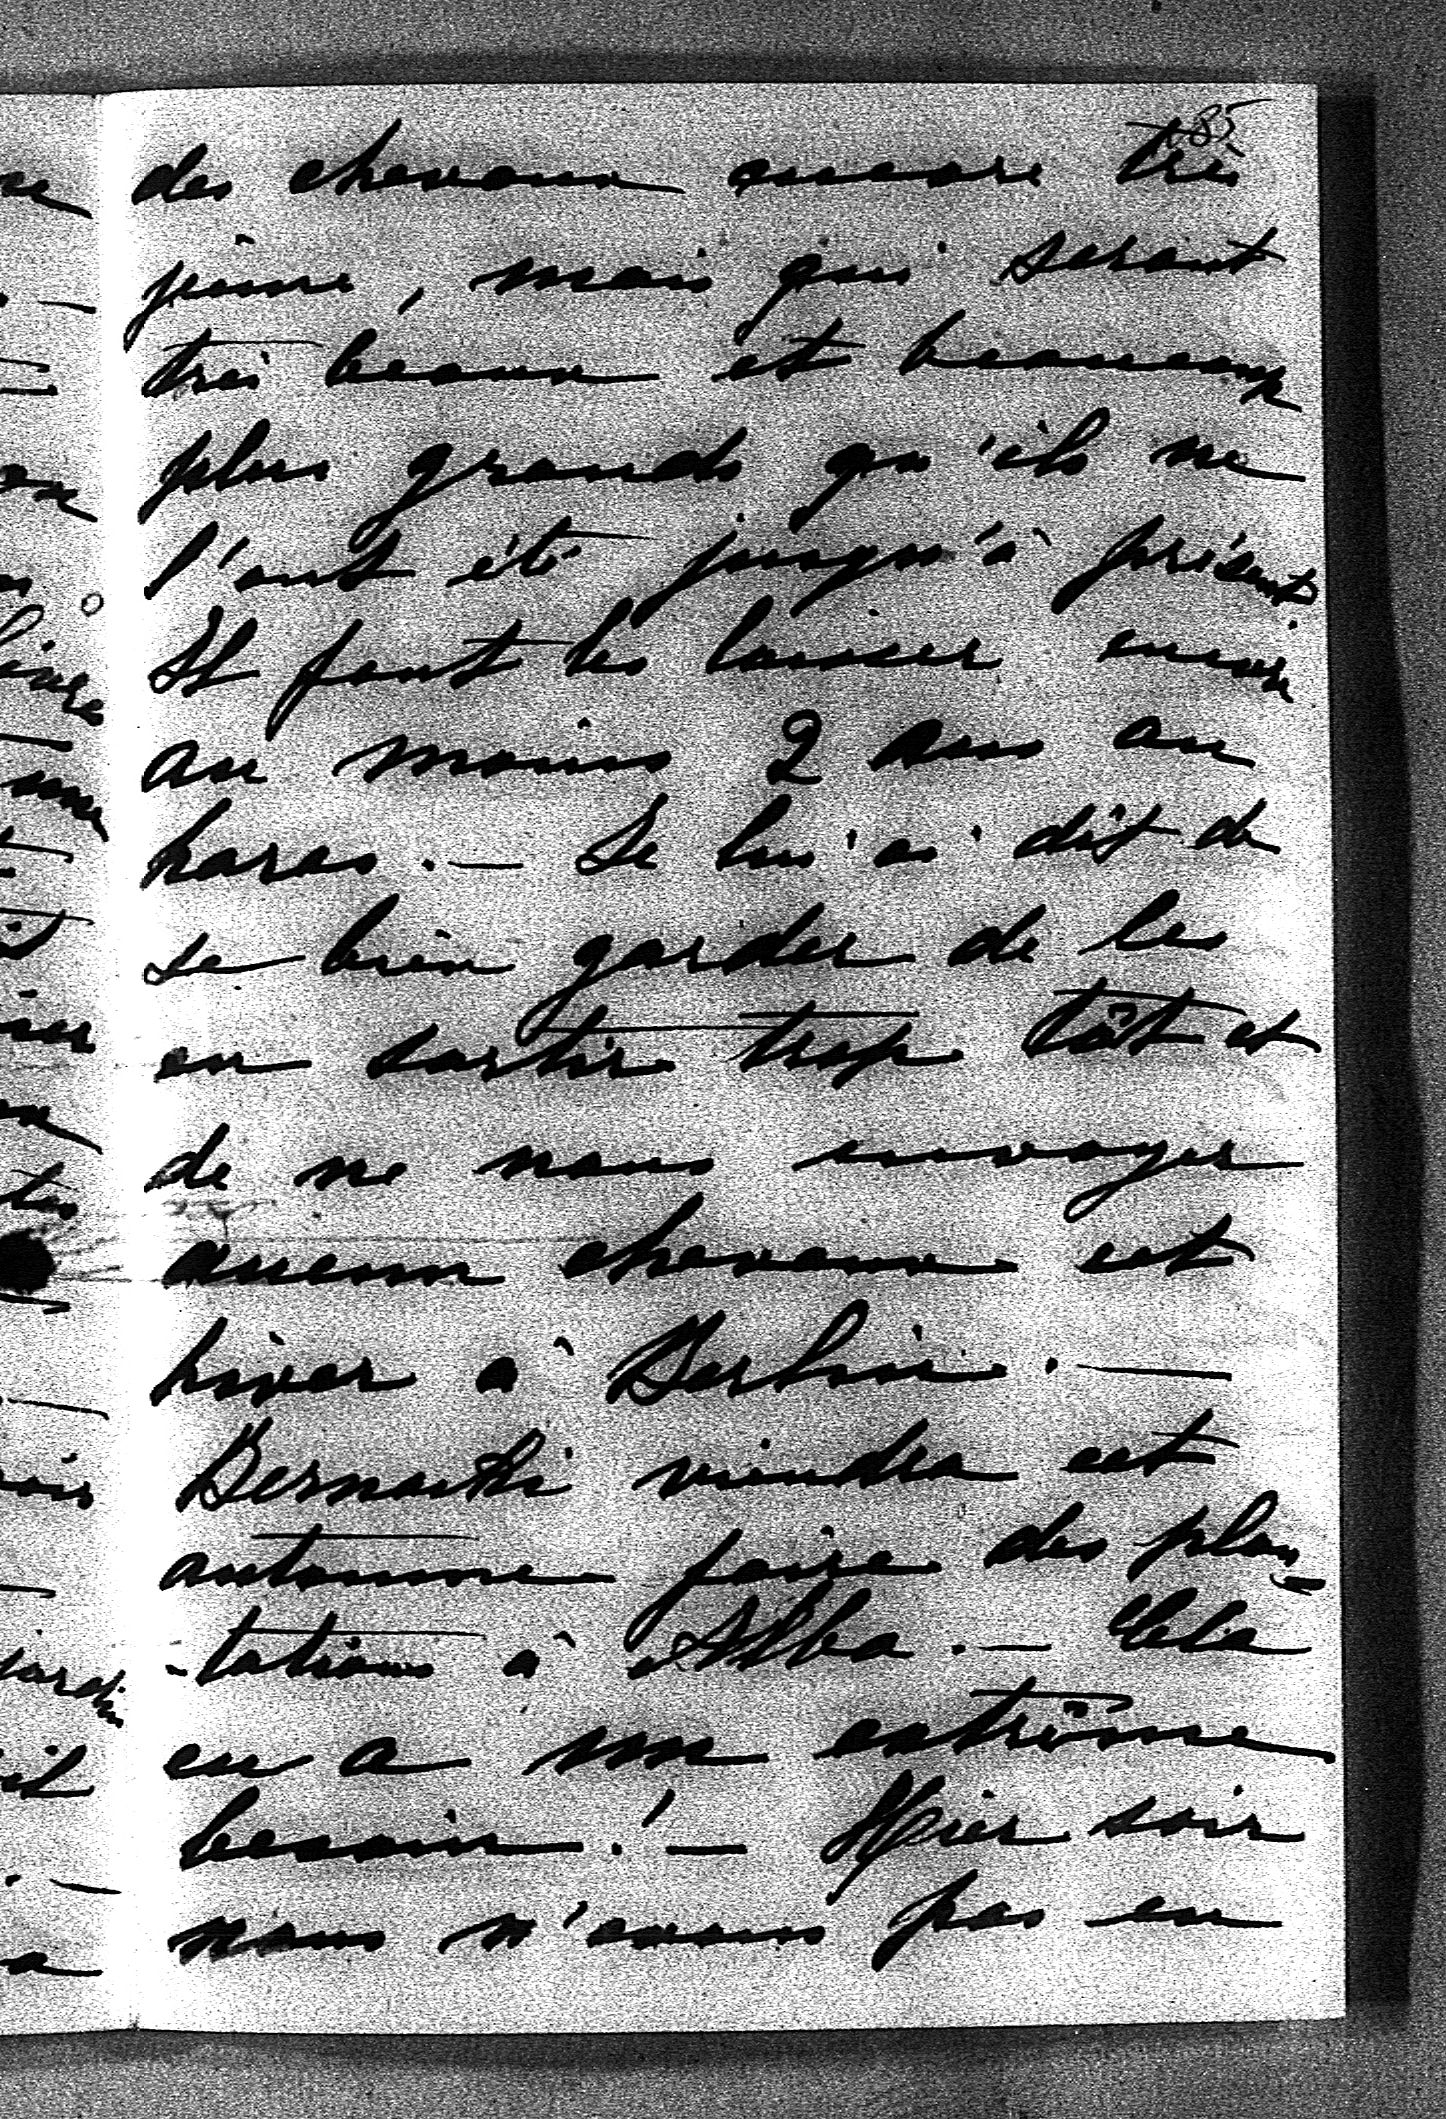 85
des chevaux encore très
jeune, mais qui seront
très beaux et beaucoup
plus grands qu'ils ne
l'ont été jusqu'à présent
Il faut les laisser encore
au moins 2 ans au
haras. — Je lui ai dit de
se bien garder de les
en sortir trop tôt et
de ne nous envoyer
aucun chevaux cet
hiver à Berlin. —
viendra cet
automne faire des plan=
-tations à Alba. — Cela
en a un extrême
besoin! — Hier soir
nous n'avons pas eu